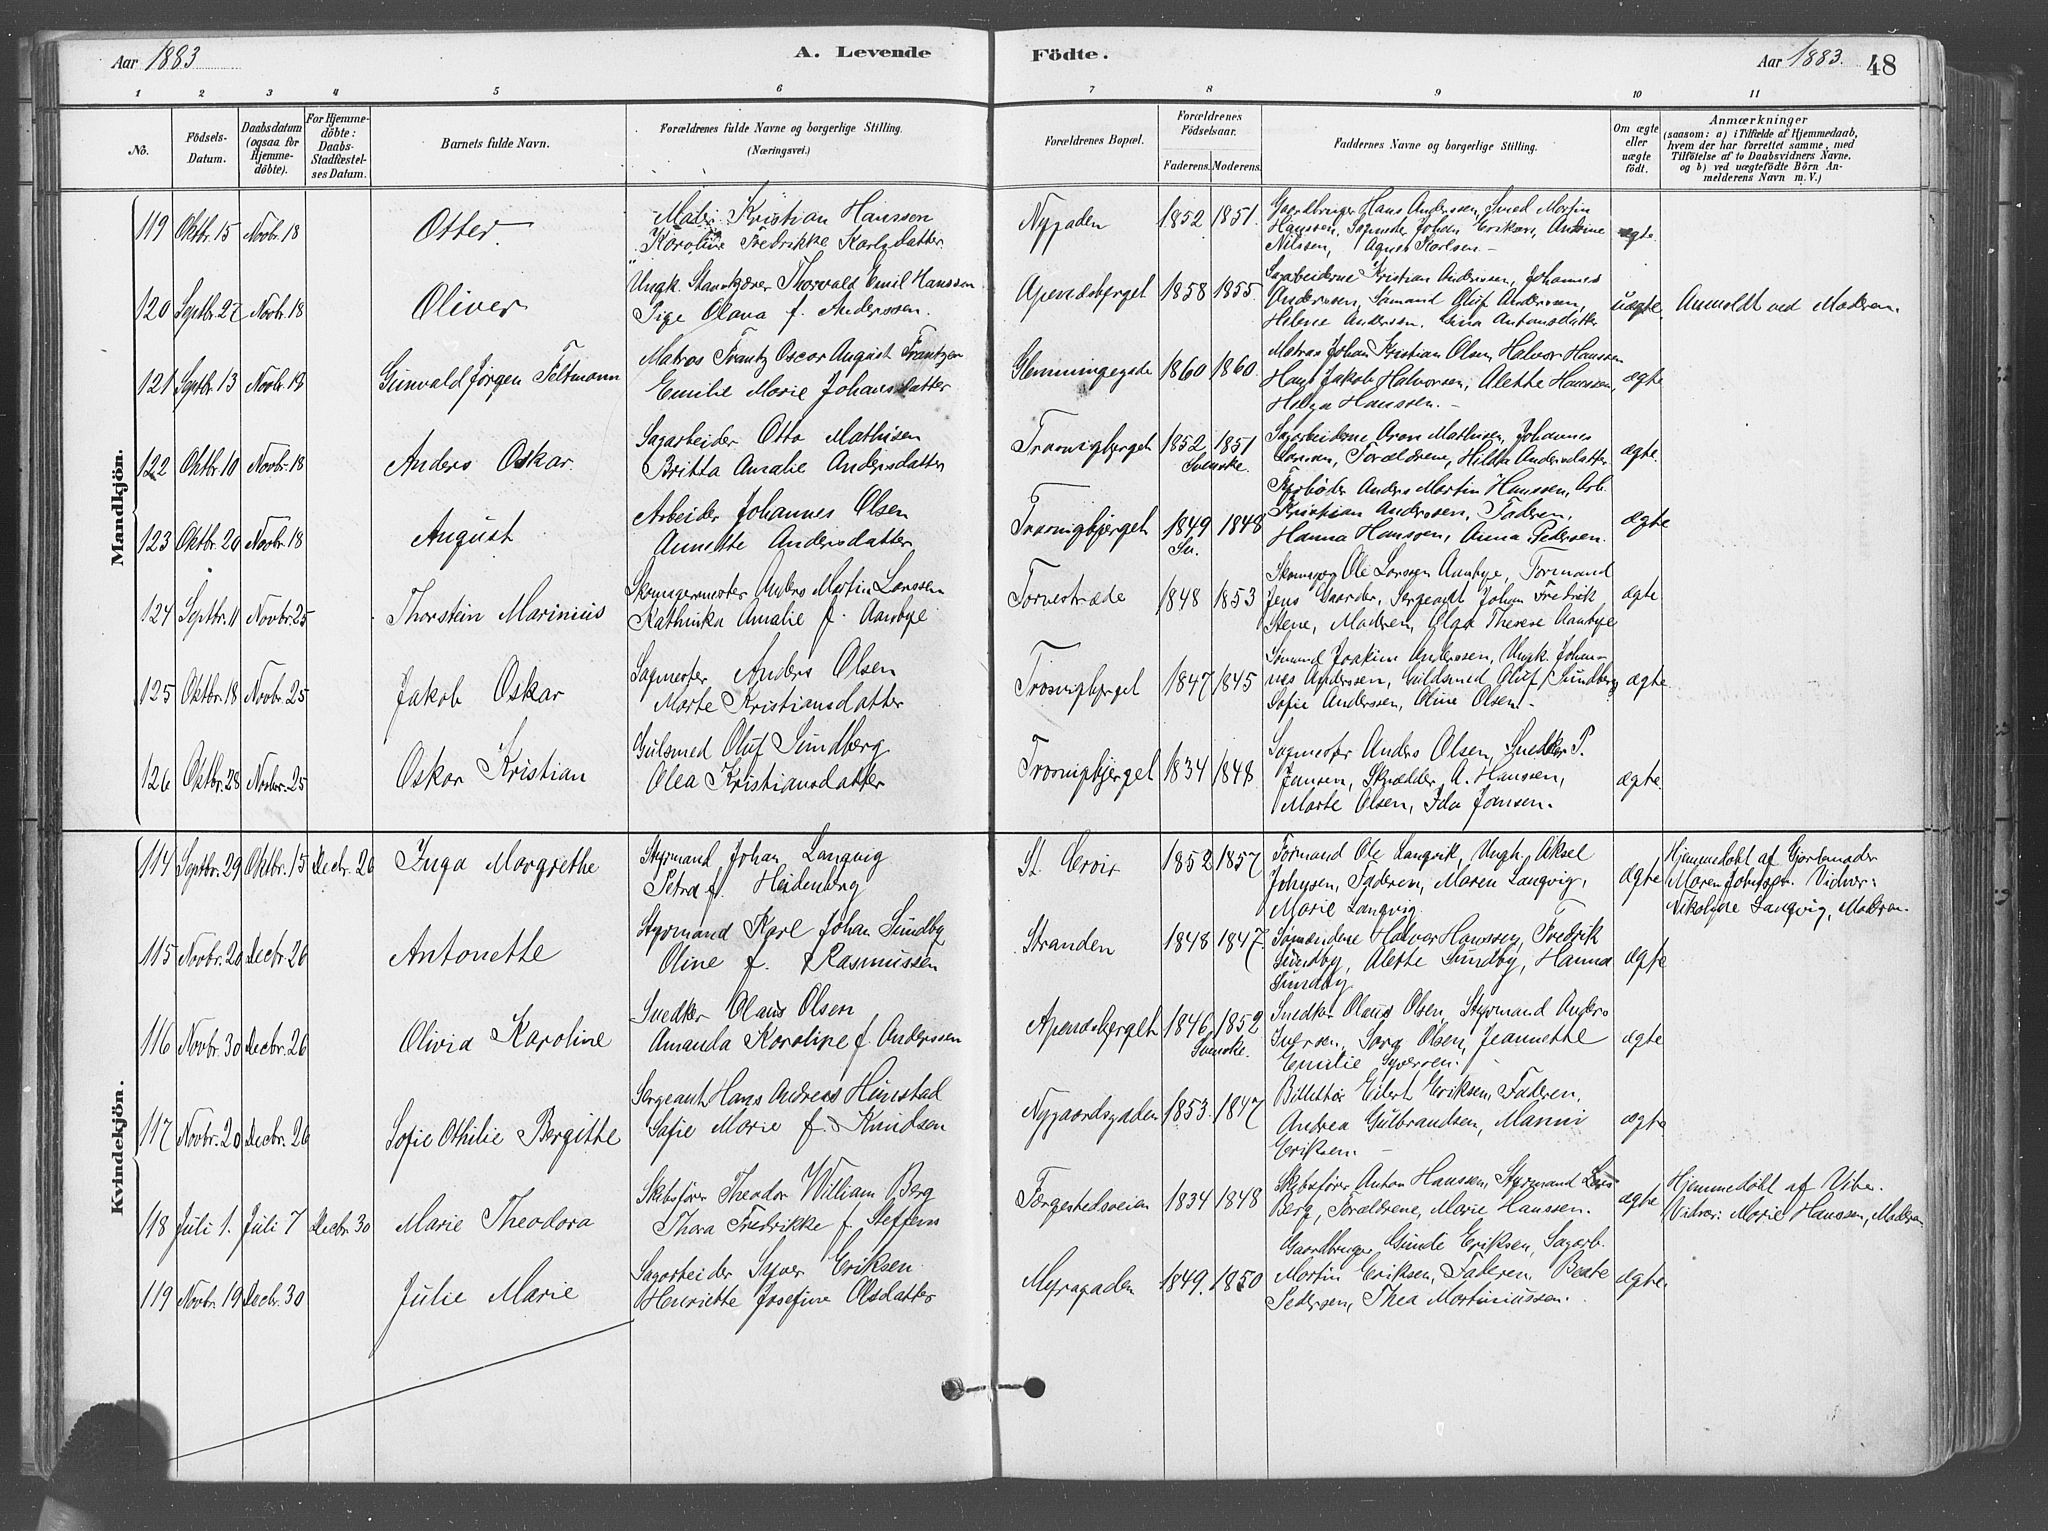 Aar 1883 A. Levende Födte. Aar 1883. 48
1 2 3 4 5 6 7 8 9 10 11
No. Födsels-Datum. Daabsdatum (ogsaa for Hjemme-döbte). For Hjemme-döbte: Daabs-Stadfæstel-ses Datum. Barnets fulde Navn. Forældrenes fulde Navne og borgerlige Stilling. (Næringsvei.) Forældrenes Bopæl. Forældrenes Födselsaar. Faderens. Moderens. Faddernes Navne og borgerlige Stilling. Om ægte eller uægte födt. Anmærkninger (saasom: a) i Tilfælde af Hjemmedaab, hvem der har forrettet samme, med Tilföielse af to Daabsvidners Navne, og b) ved uægtefödte Börn An-melderens Navn m. V.)
Mandkjön.
119 Oktbr. 15 Novbr. 18 Otter.
Kristian Hanssen
Karoline Fredrikke Karlsdatter
Nygaden 1852 1851.
Gaardbruger Hans Anderssen, Smed Martin
Hanssen, Johan Eriksen,
Nilssen, Agnes Karlsen.-
ægte.
120 Septbr. 27 Novbr. 18 Oliver
Ungk. Thorvald Emil Hanssen
Pige Olava f. Anderssen.
Apenesbjerget 1858 1855.
Sagarbeiderne Kristian Anderssen, Johannes
Anderssen, Sømand Oluf Anderssen,
Helene Andersen, Lina Antonsdatter
uægte. Anmeldt ved Moderen.
121 Septbr. 13 Novbr. 19 Gunvald Jörgen Feltmann
Matros Frantz Oscar August Frantzen
Emilie Marie Johansdatter
Glemmingegade 1860 1860.
Matros Johan Kristian Olsen, Halvor Hanssen
Jakob Halvorsen, Alette Hanssen,
Helga Hanssen.-
ægte
122 Oktbr. 10 Novbr. 18 Anders Oskar.
Sagarbeider Otto Mathisen
Britta Amalie Andersdatter
Trosvigbjerget 1852 1851 Svenske.
Sagarbeiderne Aron Mathisen, Johannes
Larsen, Forældrene, Hilda Andersdatter
ægte.
123 Oktbr. 20 Novbr. 18 August
Arbeider Johannes Olsen
Annette Andersdatter
Trosvigbjerget 1849 Sv. 1848
Fyrbøder Anders Martin Hanssen, Arb.
Kristian Anderssen, Faderen,
Hanna Hanssen, Anna Pedersen.
ægte
124 Septbr. 11 Novbr. 25 Thorstein Marinius
Skomagermester Anders Martin Larssen
Kathinka Amalie f. Aambye
Torvestræde 1848 1853
Skomager Ole Larssen Aambye, Formand
Jens Vaarder, Sergeant Johan Fredrik
Stene, Moderen, Olga Therese Aambye
ægte.
125 Oktbr. 18 Novbr. 25 Jakob Oskar
Sagmester Anders Olsen
Marte Kristiansdatter
Trosvigbjerget 1847 1845
Sømand Joakim Anderssen, Ungk. Johan-
nes Anderssen, Guldsmed Oluf Sundberg
Sofie Anderssen, Oline Olsen.-
ægte
126 Oktbr. 28 Novbr. 25 Oskar Kristian
Gulsmed Oluf Sundberg
Olea Kristiansdatter
Trosvigbjerget 1834 1848
Sagmester Anders Olsen, Snedker P.
Jansen, Skrædder A. Hanssen,
Marte Olsen, Ida Jansen.
ægte.
Kvindekjön.
114 Septbr. 29 Oktbr. 15 Decbr. 26 Inga Margrethe
Styrmand Johan Langvig
Petra f. Heidenberg
St. Croix 1852 1857
Formand Ole Langvik, Ungk. Aksel
Johnsen, Faderen, Maren Langvig,
Marie Langvig.
ægte
Hjemmedøbt af Gjortemoder
Maren Johnsen. Vidner:
Nikoline Langvig, Moderen.
115 Novbr. 20 Decbr. 26 Antonette
Styrmand Karl Johan Sundby
Oline f. Rasmussen
Stranden 1848 1847.
Sømændene Halvor Hanssen, Fredrik
Sundby, Alette Sundby, Hanna
Sundby
ægte
116 Novbr. 30 Decbr. 26 Olivia Karoline
Snedker Olaus Olsen
Amanda Karoline f. Anderssen
Apenesbjerget 1846 1852 Svenske.
Snedker Olaus Olsen, Styrmand Anders
Iversen, Sara Olsen, Jeannette
Emilie Syversen.
ægte
117 Novbr. 20 Decbr. 26 Sofie Othilie Bergitte
Sergeant Hans Andreas Hunstad
Sofie Marie f. Knudsen
Nygaardsgaden 1853. 1847
Billettør Eilert Eriksen, Faderen,
Andrea Gulbrandsen, Manni
Eriksen.-
ægte
118 Juli 1. Juli 7 Decbr. 30 Marie Theodora
Skibsfører Theodor William Berg
Thora Fredrikke f. Steffens
Færgestedsveien 1834 1848
Skibsfører Anton Hanssen, Styrmand
Berg, Forældrene, Marie Hanssen.
ægte
Hjemmedøbt af Vibe.
Vidner: Marie Hanssen, Moderen
119 Novbr. 19 Decbr. 30 Julie Marie
Sagarbeider Syver Eriksen.
Henriette Josefine Olsdatter
Myragaden 1849. 1850
Gaardbruger Gunde Eriksen, Sagarb.
Martin Eriksen, Faderen, Beate
Pedersen, Thea Martiniussen.
ægte